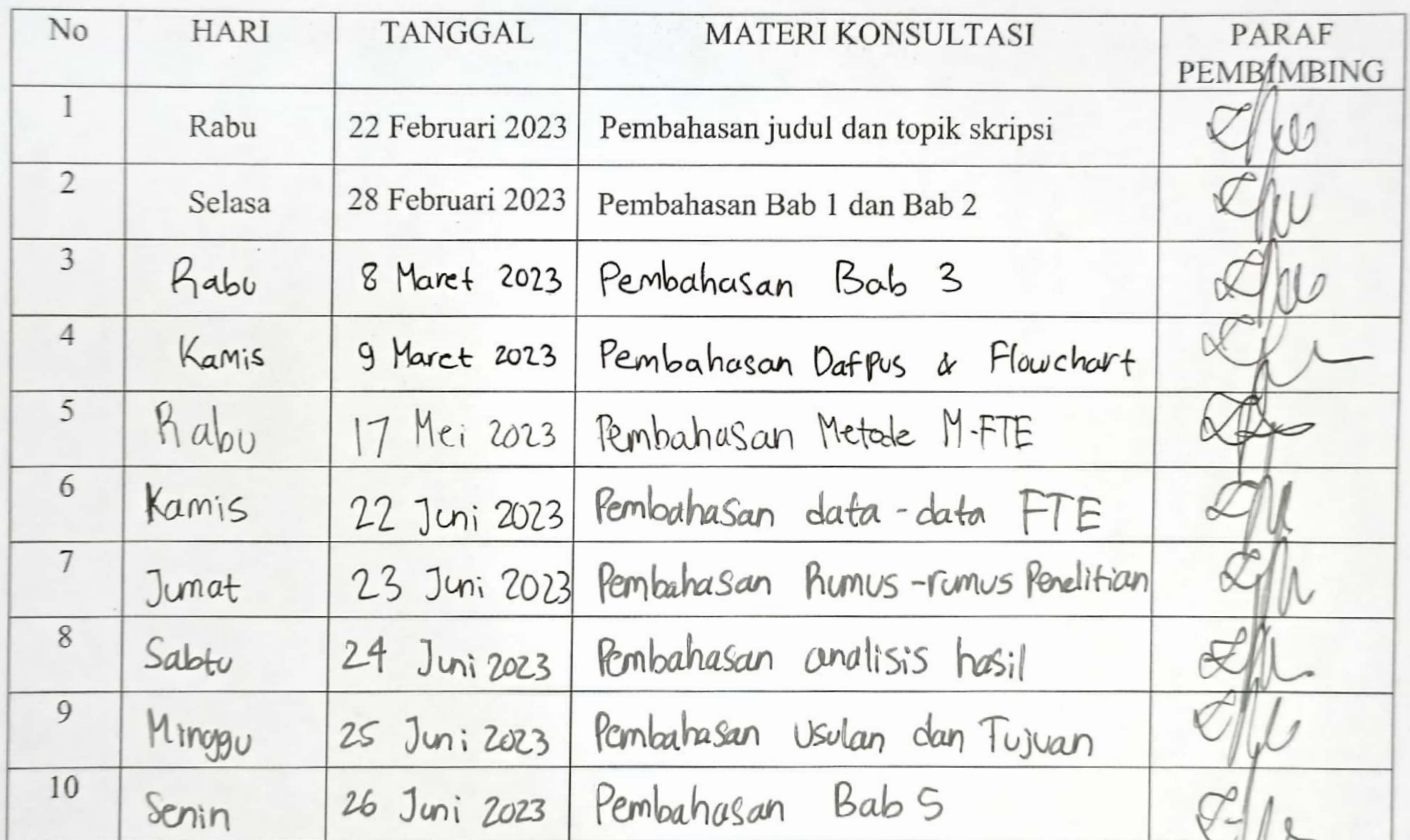 No HARI TANGGAL MATERI KONSULTASI PARAF PEMBIMBING
1 Rabu 22 Februari 2023 Pembahasan judul dan topik skripsi
2 Selasa 28 Februari 2023 Pembahasan Bab 1 dan Bab 2
3 Rabu 8 Maret 2023 Pembahasan Bab 3
4 Kamis 9 Maret 2023 Pembahasan Dafpus & Flowchart
5 Rabu 17 Mei 2023 Pembahasan Metode M-FTE
6 Kamis 22 Juni 2023 Pembahasan data-data FTE
7 Jumat 23 Juni 2023 Pembahasan Rumus-rumus Penelitian
8 Sabtu 24 Juni 2023 Pembahasan analisis hasil
9 Minggu 25 Juni 2023 Pembahasan Usulan dan Tujuan
10 Senin 26 Juni 2023 Pembahasan Bab 5